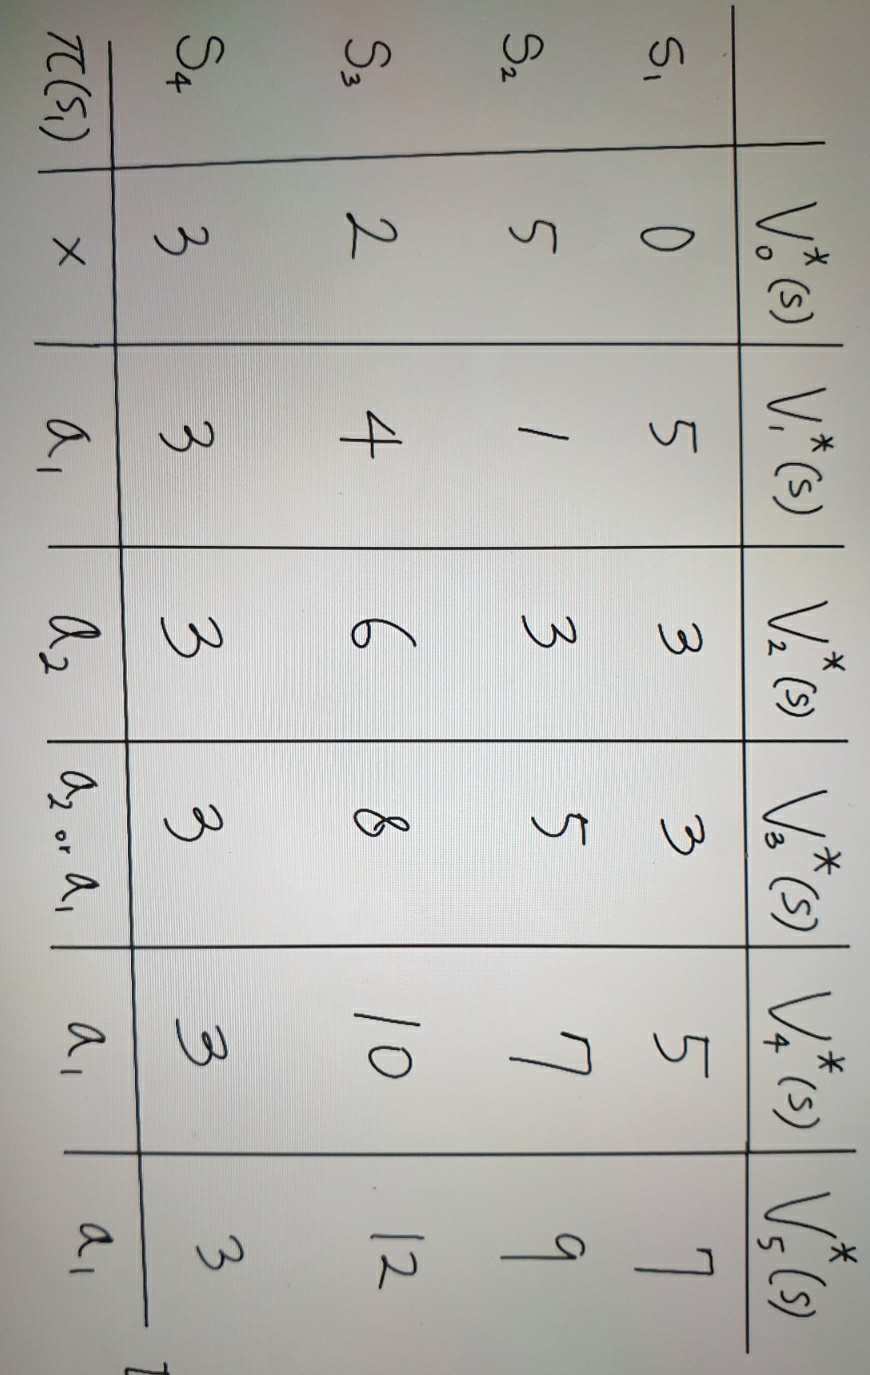 V₀*(s) V₁*(s) V₂*(s) V₃*(s) V₄*(s) V₅*(s)
S₁ 0 5 3 3 5 7
S₂ 5 1 3 5 7 9
S₃ 2 4 6 8 10 12
S₄ 3 3 3 3 3 3
π(S₁) × a₁ a₂ a₂ or a₁ a₁ a₁